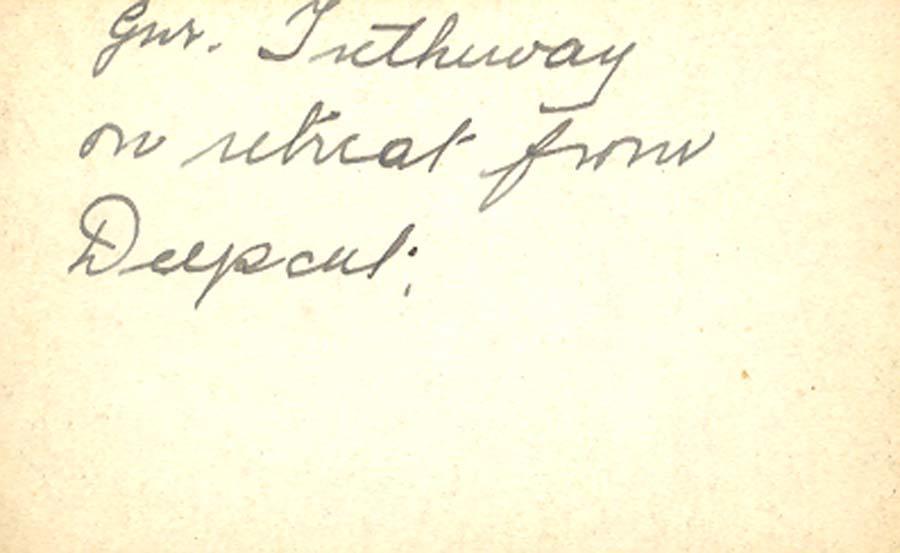 Gnr. Tretheway
on retreat from
Deepcut;